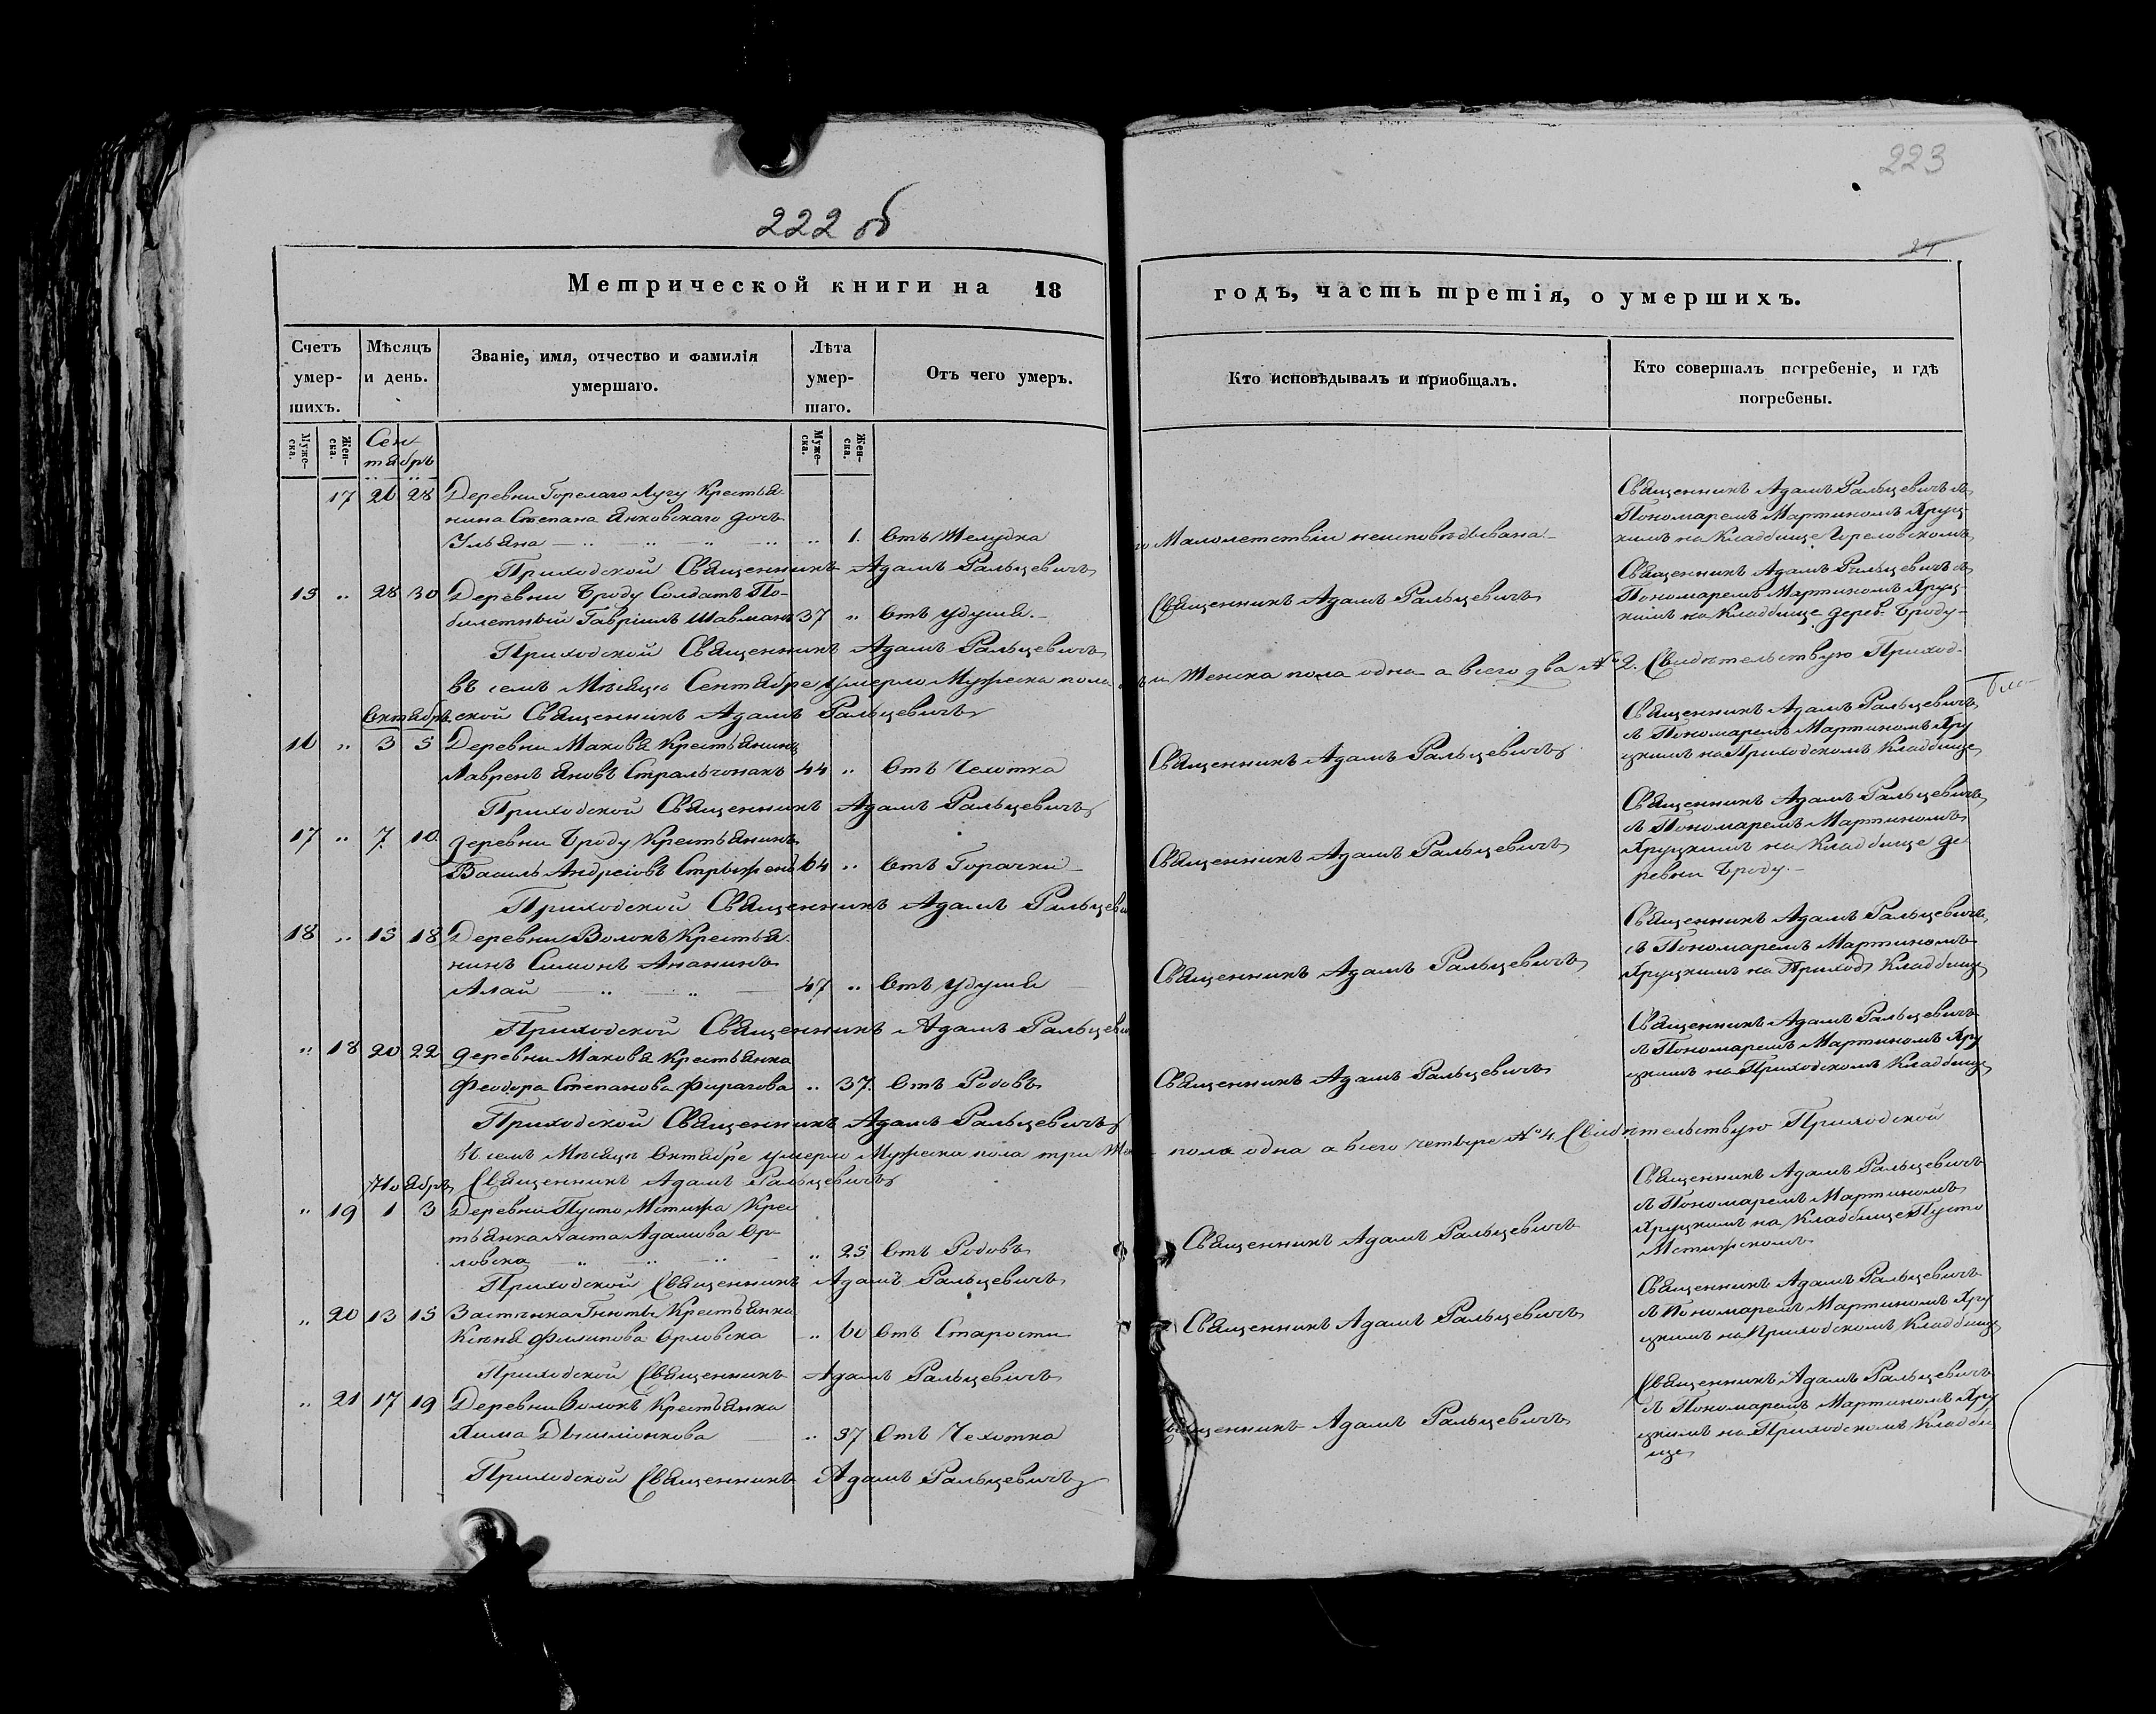 223
222 об
24
Метрической книги на 18
годъ, часть третія, о умершихъ.
Счетъ умер-шихъ.
Мѣсяцъ и день.
Званіе, имя, отчество и фамилія умершаго.
Лѣта умер-шаго.
Отъ чего умеръ.
Кто исповѣдывалъ и приобщалъ.
Кто совершалъ погребеніе, и гдѣ погребены.
Муже-ска.
Жен-ска.
Муже-ска.
Жен-ска.
Сен-
тябрь
17 26 28 Деревни Горелаго Лугу Крестья-
нина Степана Янковскаго дочь
Ульяна „ 1. Отъ Желудка
Малолетствіи неисповѣдывана
Священникъ Адамъ Ральцевичъ съ
Пономаремъ Мартиномъ Хруц-
кимъ на Кладбище Гореловскомъ
Приходской Священникъ Адамъ Ральцевичъ
15 „ 28 30 Деревни Броду Солдатъ По-
билетный Гавріилъ Шавман 37 „ Отъ Удушя.
Священникъ Адамъ Ральцевичъ
Священникъ Адамъ Ральцевичъ съ
Пономаремъ Мартиномъ Хруц-
кимъ на Кладбище дерев. Броду
Приходской Священникъ Адамъ Ральцевичъ
Въ семъ Мѣсяцѣ Сентябре умерло Мужеска пола
и Женска пола одна а всего два № 2. Свидѣтельствую Приход-
Октябрь
ской Священникъ Адамъ Ральцевичъ
16 „ 3 5 Деревни Махова Крестьянинъ
Лавренъ Яновъ Стральчонакъ 44 „ Отъ Чехотка
Священникъ Адамъ Ральцевичъ
Священникъ Адамъ Ральцевичъ
съ Пономаремъ Мартиномъ Хру
цкимъ на Приходскомъ Кладбище
Приходской Священникъ Адамъ Ральцевичъ
17 „ 7 10 деревни Броду Крестьянинъ
Василь Андреіовъ Стрыжень 64 „ Отъ Горачки
Священникъ Адамъ Ральцевичъ
Священникъ Адамъ Ральцевичъ
съ Пономаремъ Мартиномъ
Хруцкимъ на Кладбище де
ревни Броду.
Приходской Священникъ Адамъ Ральцеви
18 „ 15 18 Деревни Волокъ Крестья-
нинъ Симонъ Ананинъ
Алай 47 „ Отъ Удушя
Священникъ Адамъ Ральцевичъ
Священникъ Адамъ Ральцевичъ
съ Пономаремъ Мартиномъ
Хруцкимъ на Приход Кладбище
Приходской Священникъ Адамъ Ральцеви
„ 18 20 22 деревни Махова Крестьянка
Феодора Степанова Фирагова „ 37. Отъ Родовъ
Священникъ Адамъ Ральцевичъ
Священникъ Адамъ Ральцевичъ
съ Пономаремъ Мартиномъ Хру
цкимъ на Приходскомъ Кладбище
Приходской Священникъ Адамъ Ральцевичъ
Въ семъ Мѣсяцѣ Октябре умерло Мужеска пола три Же
пола одна а всего четыре № 4 Свидѣтельствую Приходской
Ноябрь
Священникъ Адамъ Ральцевичъ
„ 19 1 3 Деревни Пусто Мстижа Крес
тьянка Наста Адамова Ор-
ловска „ 25 Отъ Родовъ
Священникъ Адамъ Ральцевичъ
Священникъ Адамъ Ральцевичъ
съ Пономаремъ Мартиномъ
Хруцкимъ на Кладбище Пусто
Мстижскомъ
Приходской Священникъ Адамъ Ральцевичъ
„ 20 13 15 Застѣнка Гнюты Крестьянка
Ксѣня Филипова Орловска „ 60 Отъ Старости
Священникъ Адамъ Ральцевичъ
Священникъ Адамъ Ральцевичъ
съ Пономаремъ Мартиномъ Хру
цкимъ на Приходскомъ Кладбище
Приходской Священникъ Адамъ Ральцевичъ
„ 21 17 19 Деревни Волокъ Крестьянка
Хима „ 37 Отъ Чехотка
Священникъ Адамъ Ральцевичъ
Священникъ Адамъ Ральцевичъ
съ Пономаремъ Мартиномъ Хру
цкимъ на Приходскомъ Кладби
ще
Приходской Священникъ Адамъ Ральцевичъ